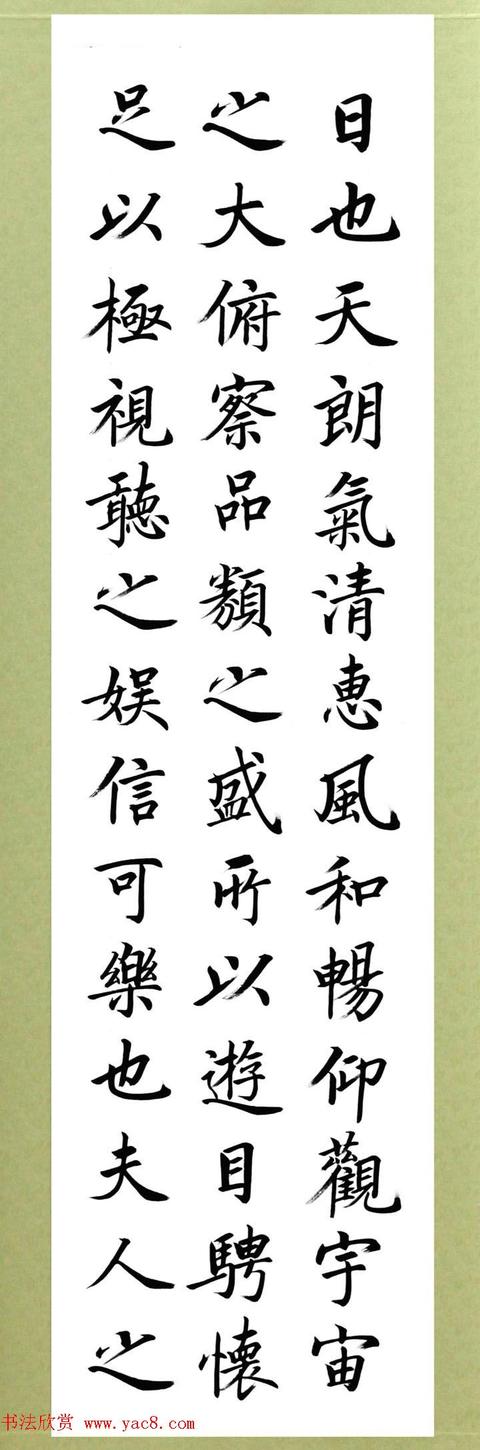 日也天朗氣清惠風和暢仰觀宇宙
之大俯察品類之盛所以遊目騁懷
足以極視聽之娱信可樂也夫人之
书法欣赏 www.yac8.com